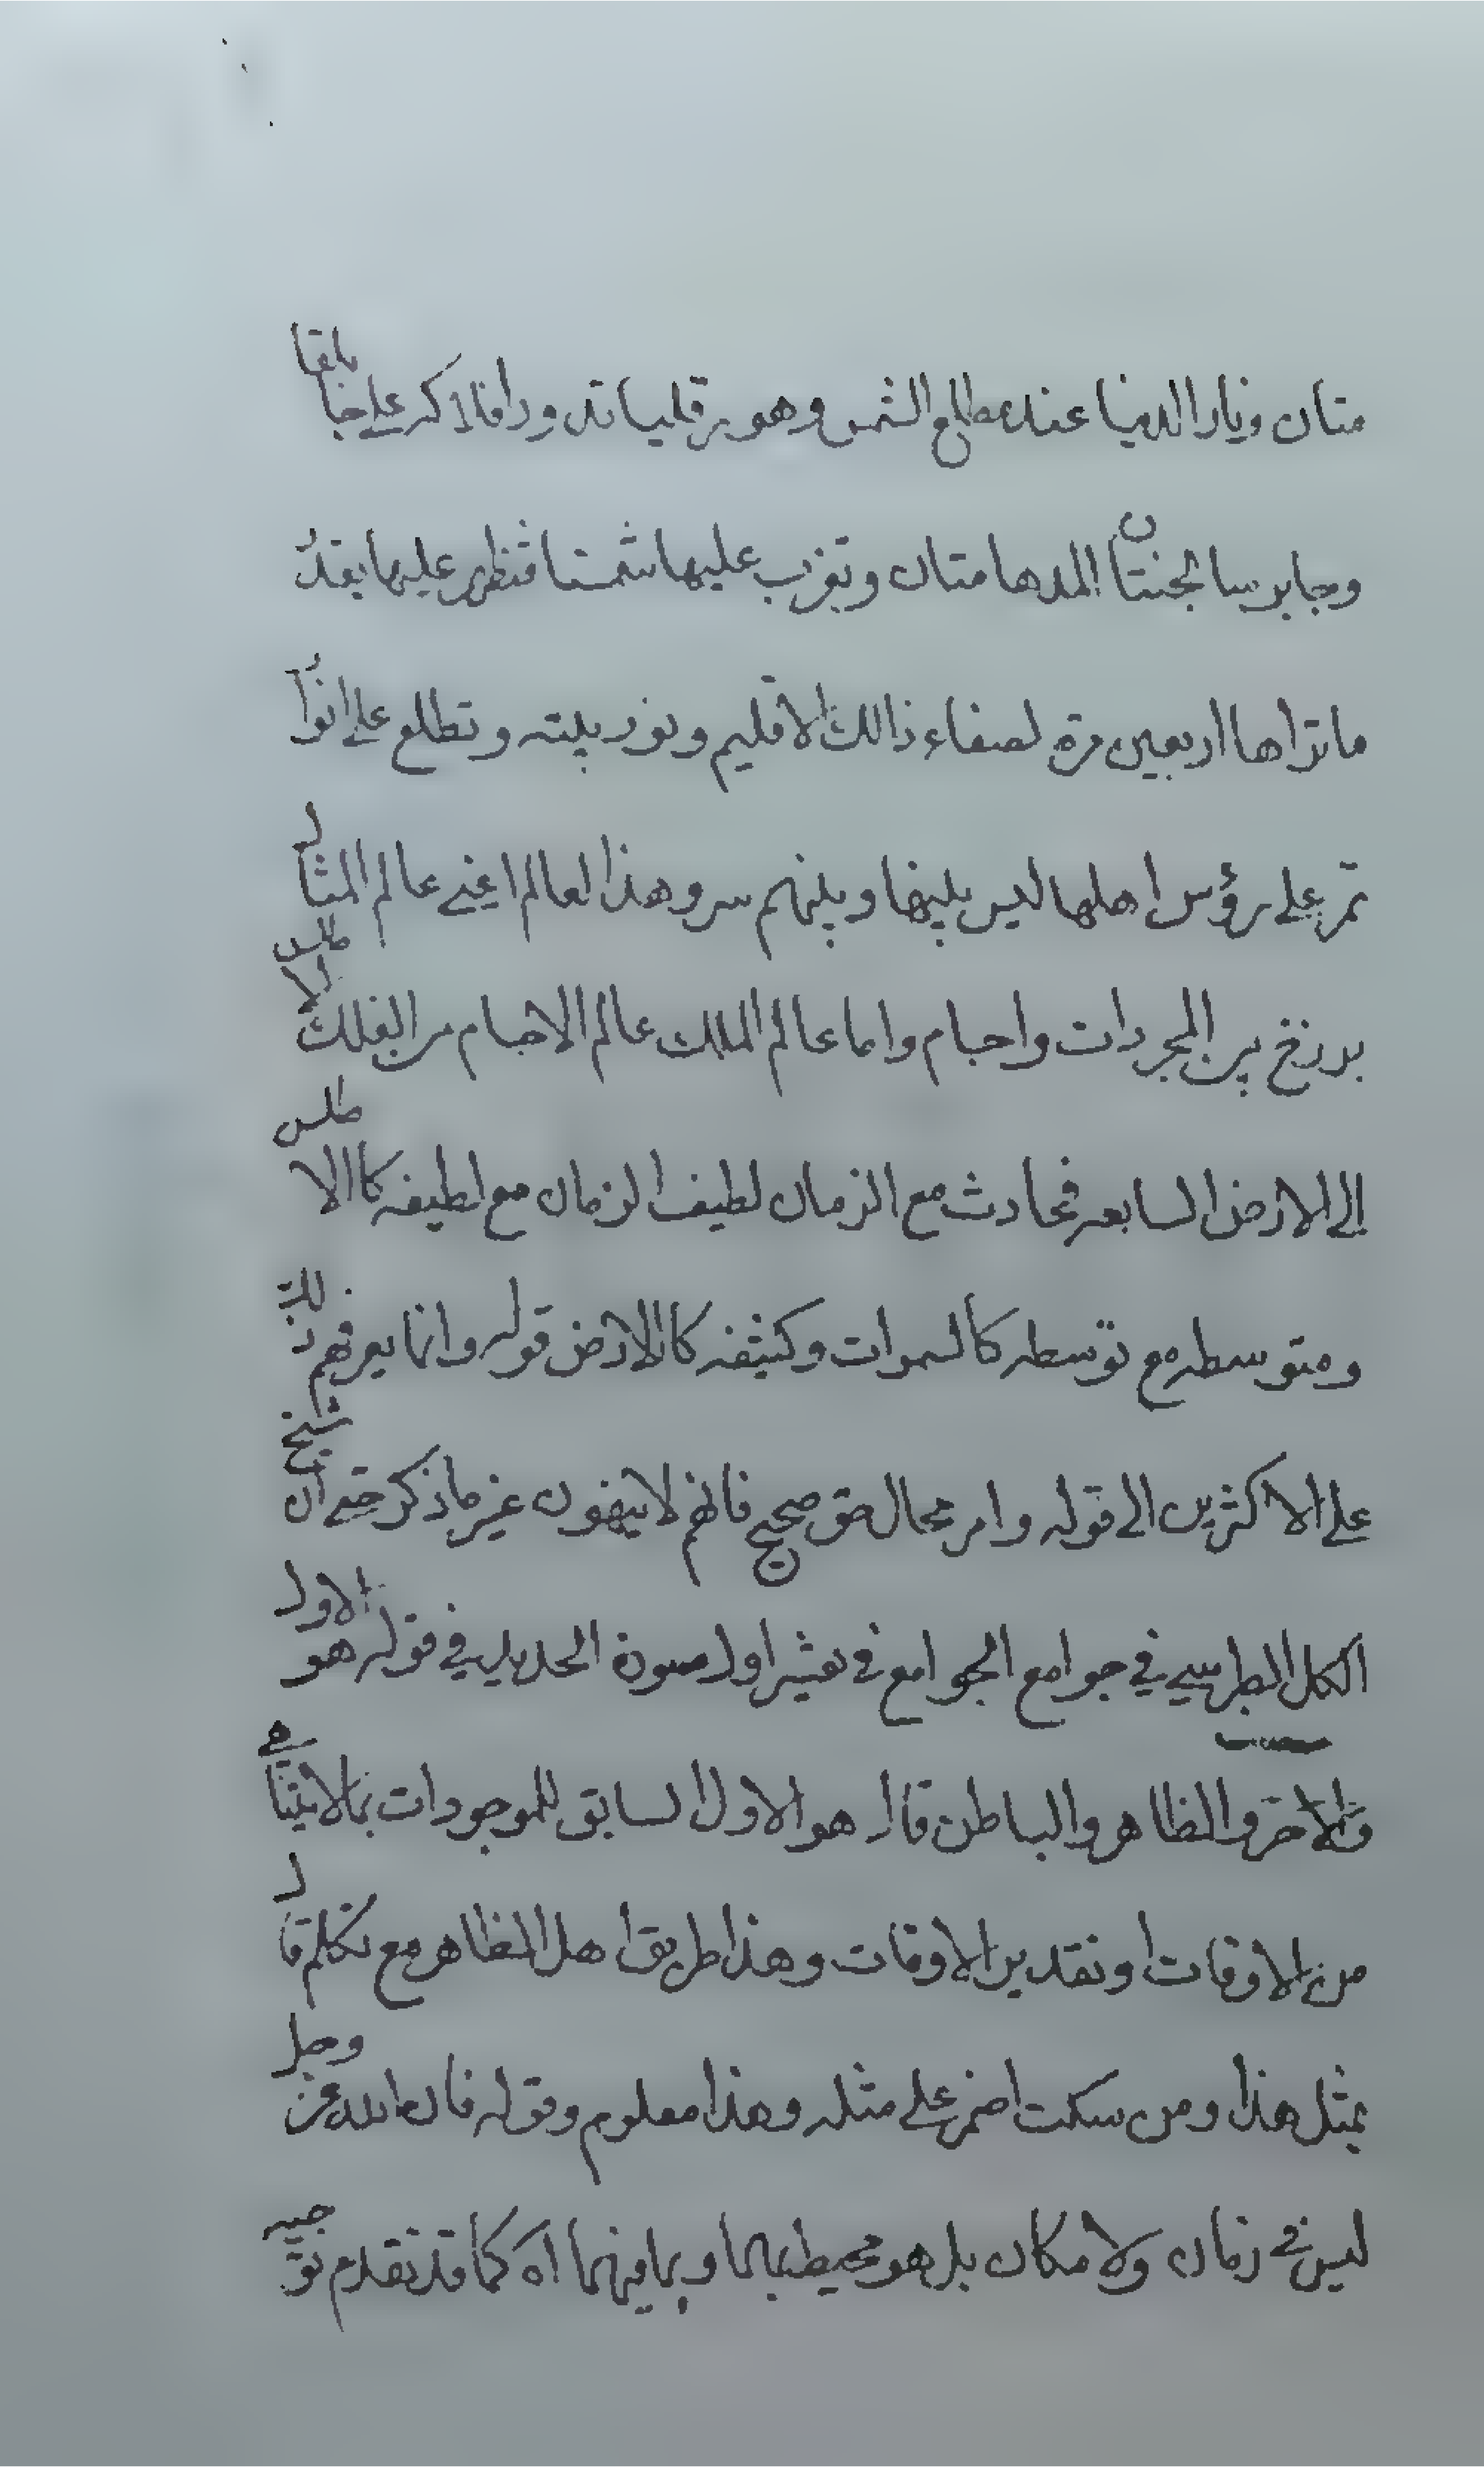 متان ونار الدنيا عند مطلع الشمس وهورقليا تدور افلاكه على جابلقا
وجابرسا الجنتان المدهامتان وتغرب عليها شمسنا فتظهر عليها بقدر
ما تراها اربعين مرة لصفاء ذالك الاقليم ونوريته وتطلع على انوار
تمر على رؤس اهلها ليس بينها وبينهم سر وهذا العالم اعني عالم المثال
برزخ بين المجردات واجسام واما عالم الملك عالم الاجسام من الفلك الاطلس
الى الارض السابعه فحادث مع الزمان لطيف الزمان مع لطيفه كالاطلس
ومتوسطه مع توسطه كالسموات وكثيفه كالارض قوله وانما يعرفهم ذلك
على الاكثرين الى قوله وامر محال حق صحيح فانهم لا ينفون غير ما ذكر حتى ان الشيخ
الكل الطبرسي في جوامع الجوامع في تفسير اول سورة الحديد في قوله هو الاول
والاخر والظاهر والباطن قال هو الاول السابق للموجودات بما لا يتناهى
من الاوقات او تقدير الاوقات وهذا طريق اهل الظاهر مع تكلم قال
بمثل هذا ومن سكت اضمر على مثله وهذا معلوم وقوله فان الله عز وجل
ليس في زمان ولا مكان بل هو محيط بهما وبما فيهما اه كما قد تقدم توجيه